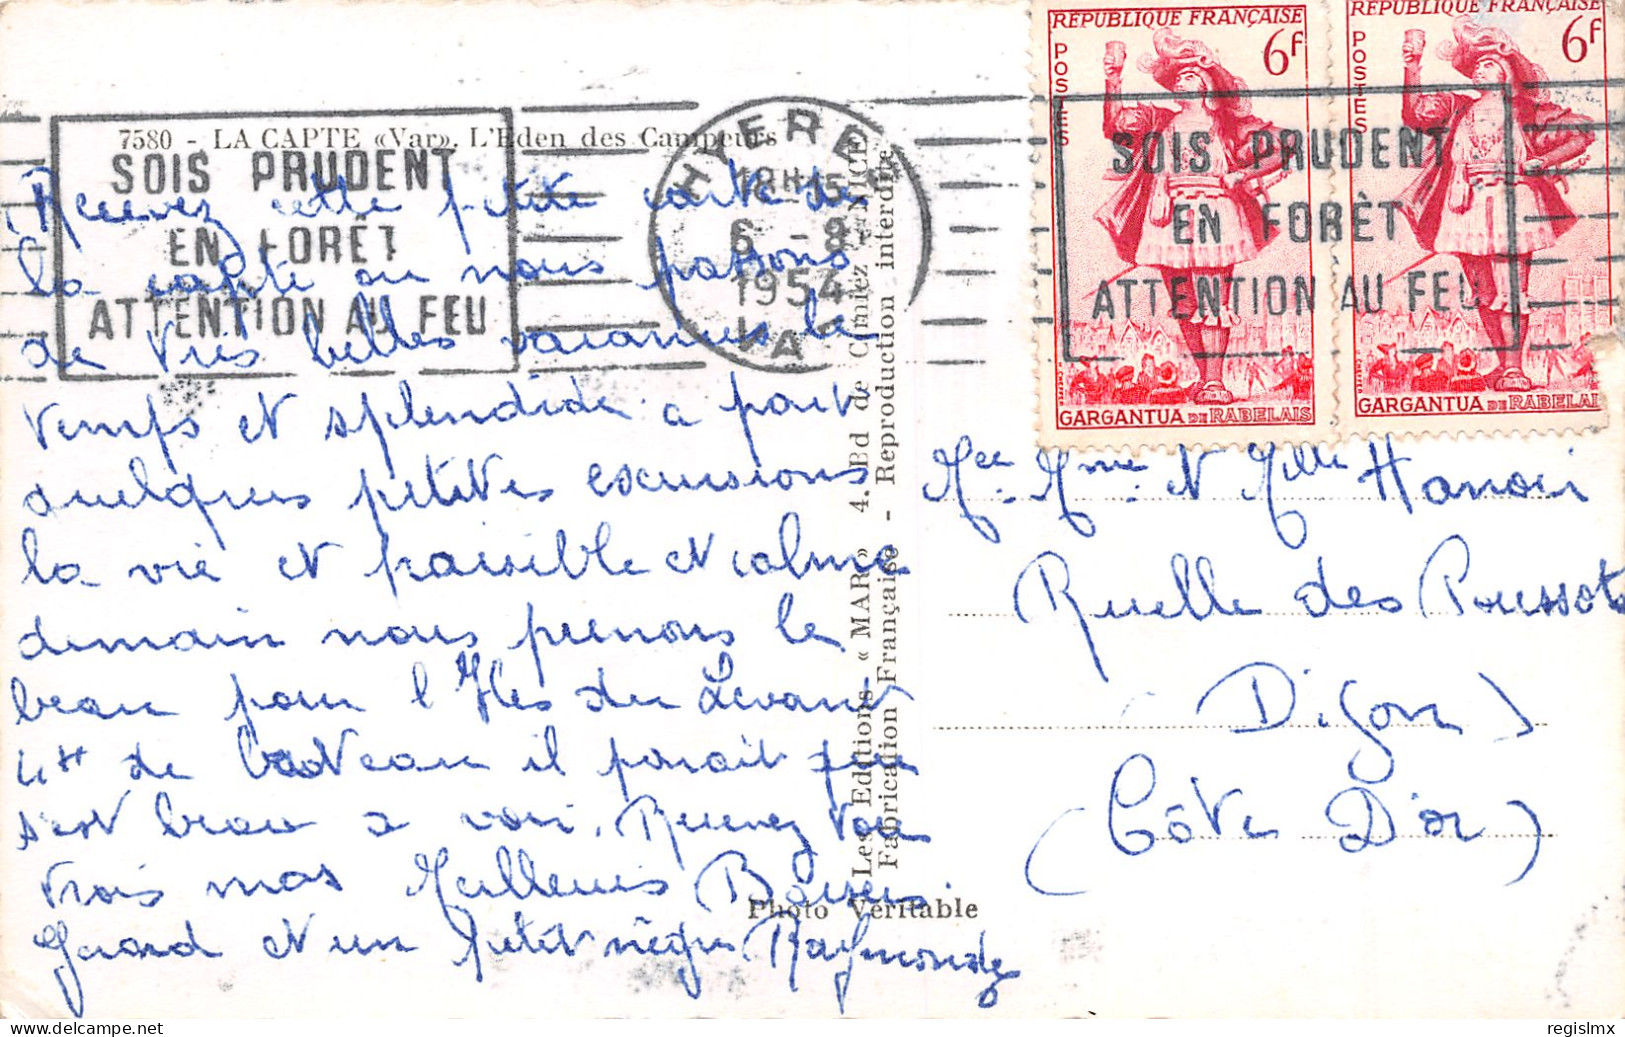 7580 - LA CAPTE «Var». L'Eden des Campeurs
SOIS PRUDENT
EN FORÊT
ATTENTION AU FEU
HYERES
18H15
6 - 8
1954
VAR
RÉPUBLIQUE FRANÇAISE
POSTES
6F
GARGANTUA DE RABELAIS
RÉPUBLIQUE FRANÇAISE
POSTES
6F
GARGANTUA DE RABELAI
SOIS PRUDENT
EN FORÊT
ATTENTION AU FEU
Recevez cette petite carte de
la capte ou nous passons
de très belles vacances le
temps et splendide a part
quelques petites excursions
la vie et paisible et calme
demain nous prenons le
beau pour l'Iles du Levant
4H de bateau il parait que
s'est beau a voir. Recevez tous
trois mas Meilleurs Baisers.
Gerard et un petit nègre Raymonde
Les Editions « MAR » 4. Bd de Cimiez - NICE
Fabrication Française - Reproduction interdite
Photo Véritable
Mee. Mme. et Melle Hanoir
Ruelle des Poussots
Dijon
(Côte D'or)
regislmx